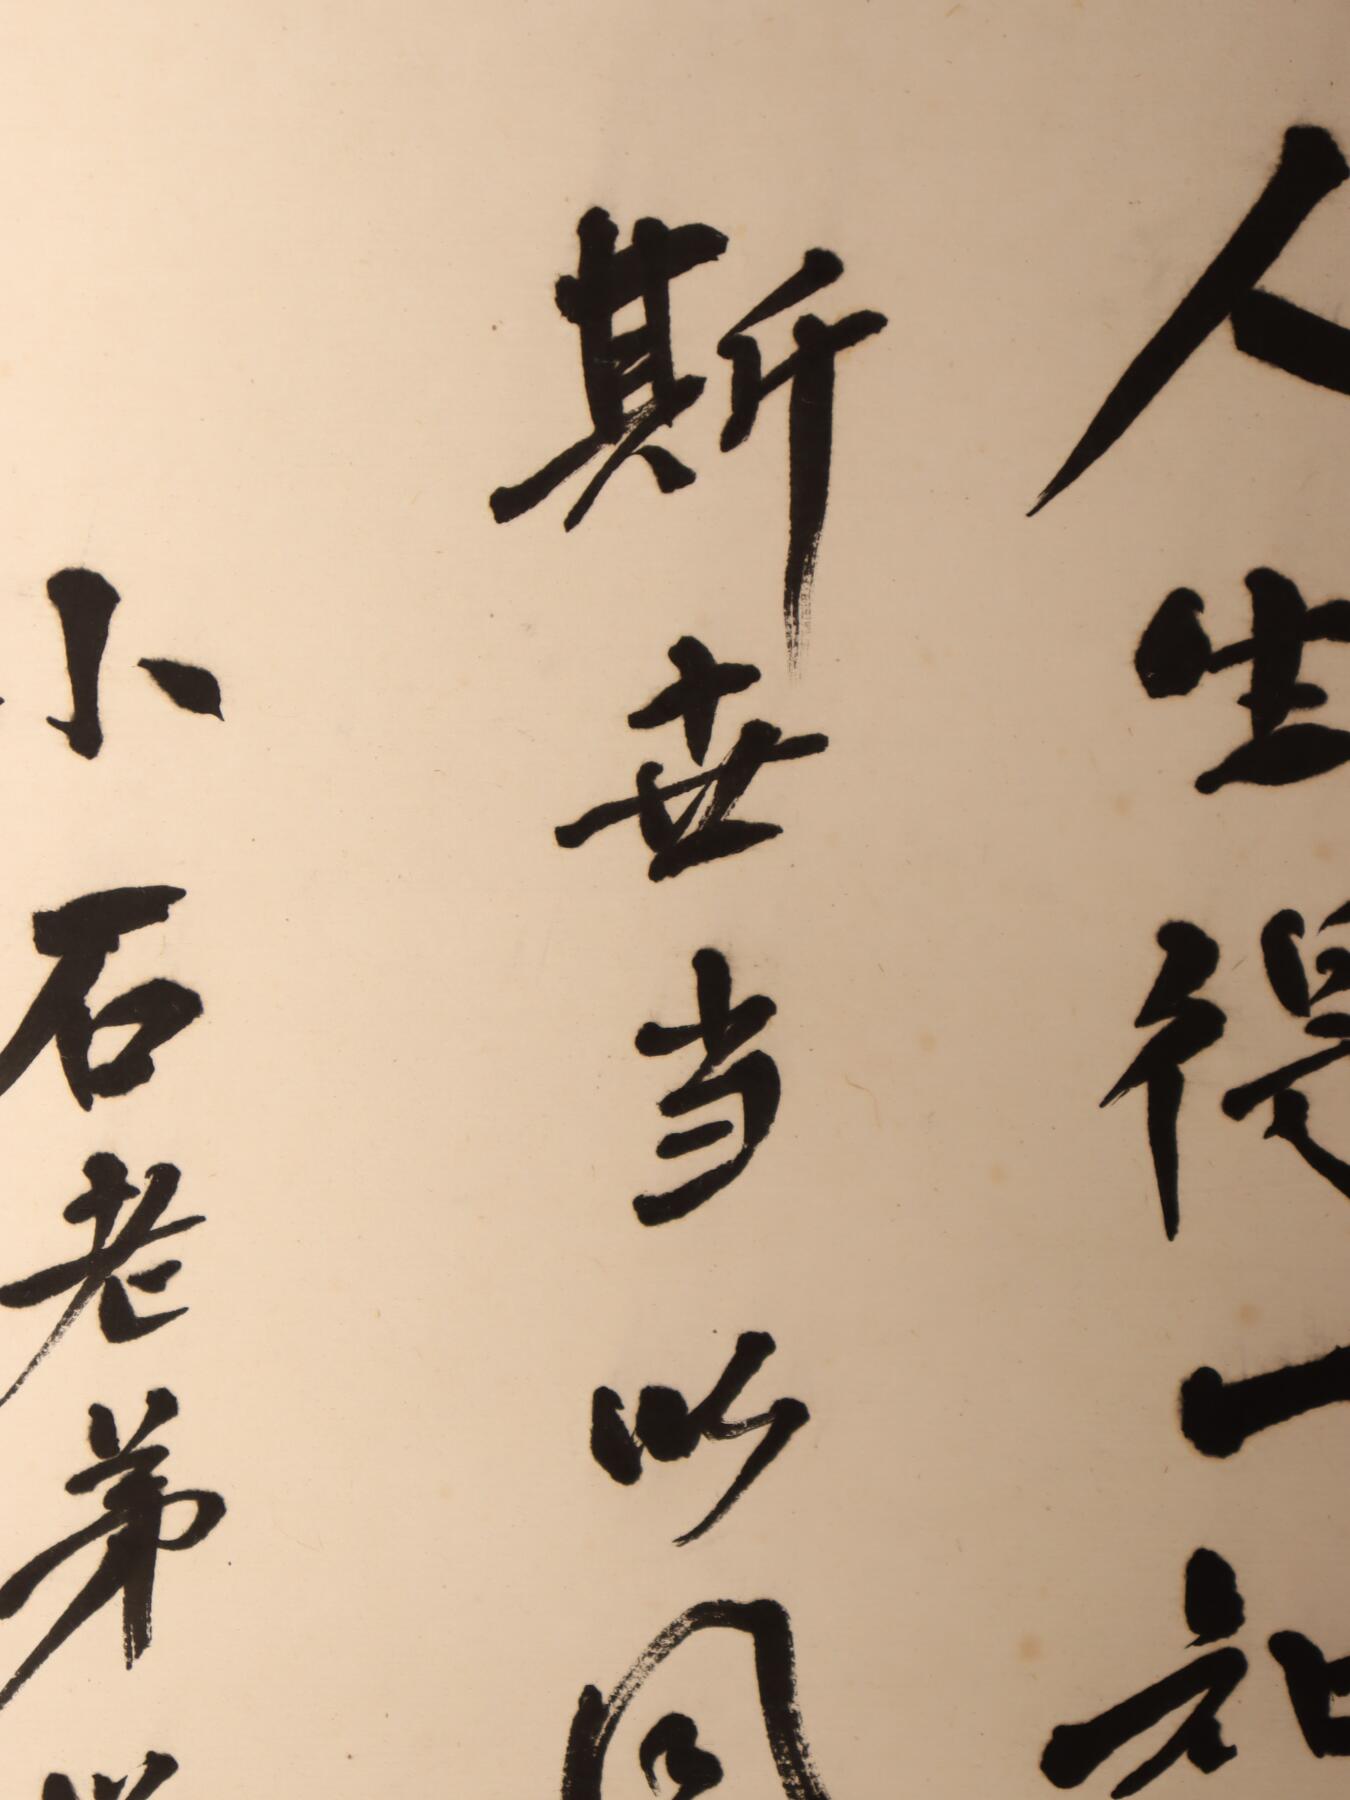 人生得一知
斯世当以同
小石老弟